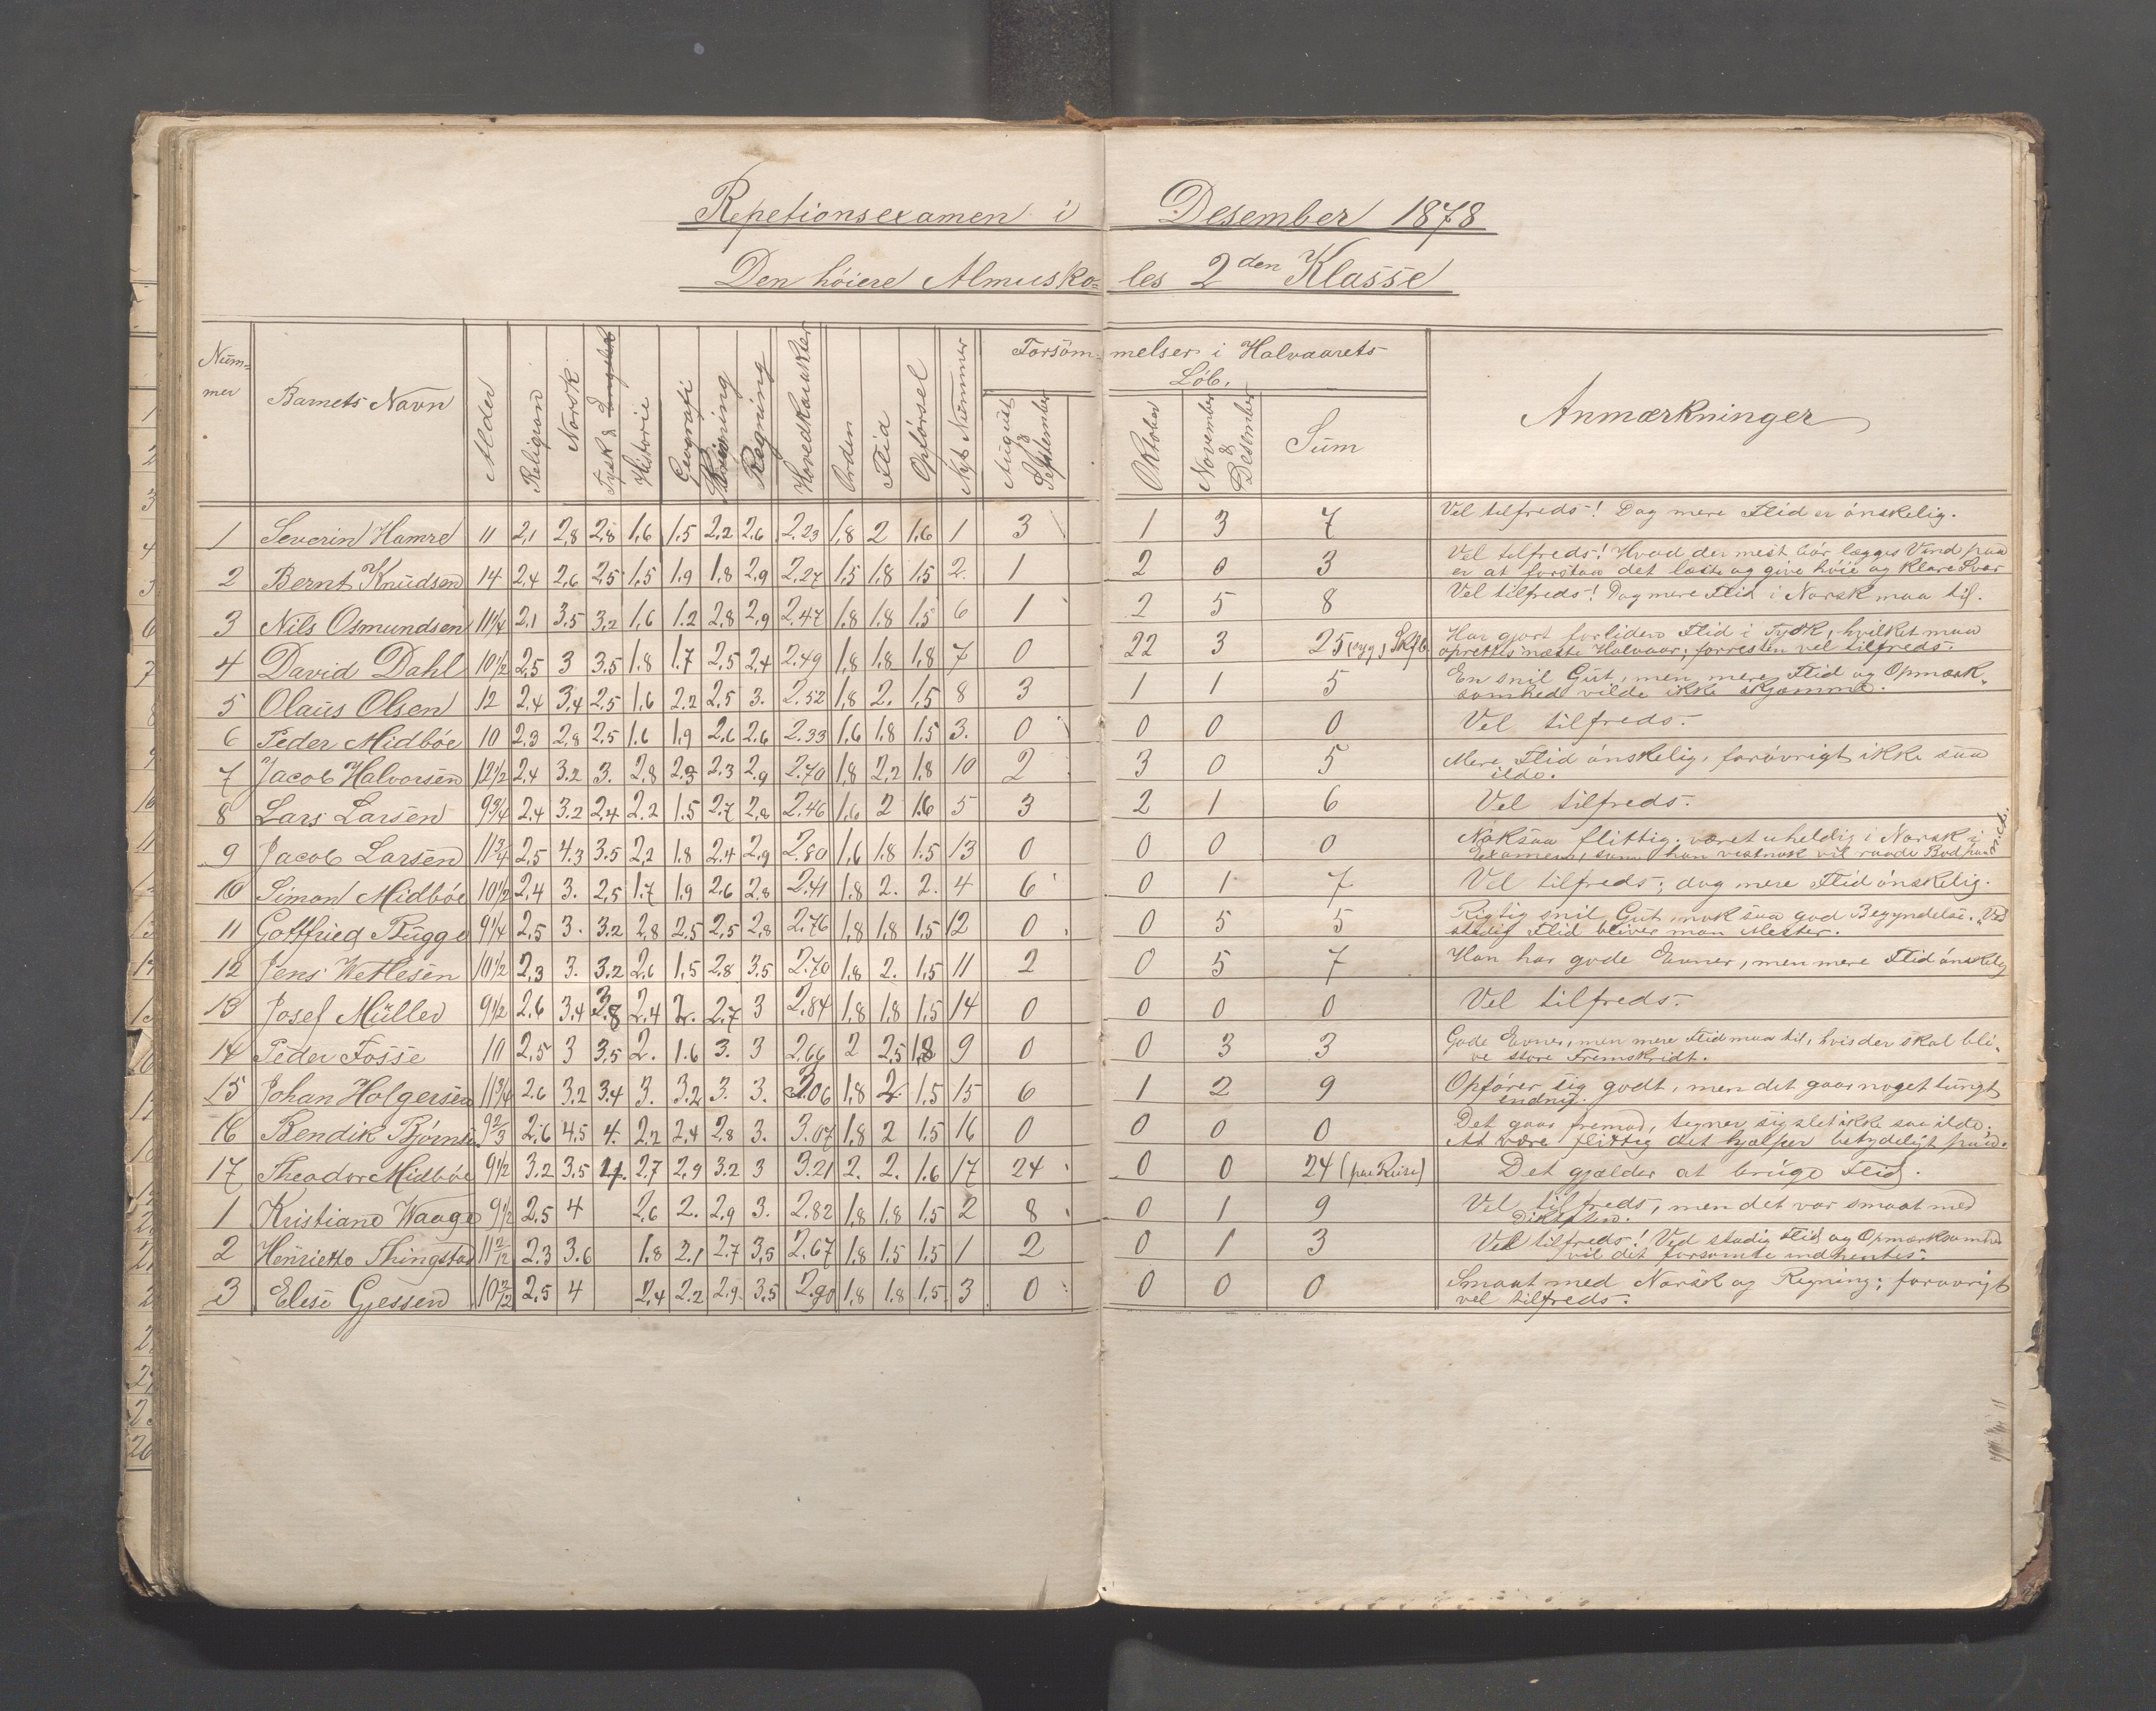 Repetionsexamen i Desember 1878
Den höiere Almusko- les 2den Klasse
Num- mer | Barnets Navn | Alder | Religion | Norsk | Tysk & Engelsk | Historie | Geografi | Skrivning | Regning | Hovedkarakter | Orden | Flid | Opförsel | Nyt Nummer | Forsöm- melser i Halvaarets Löb. | August & September | Oktober | November & Desember | Sum | Anmærkninger
1 Severin Hamre 11 2,1 2,8 2,8 1,6 1,5 2,2 2,6 2.23 1,8 2 1,6 1 3 1 3 7 Vel tilfreds! Dog mere Flid er önskelig.
2 Bernt Knudsen 14 2,4 2,6 2,5 1,5 1,9 1,8 2,9 2,27 1,5 1,8 1,5 2. 1 2 0 3 Vel tilfreds! Hvad der mest bör lægges Vind paa
er at forstaa det læste og give höie og klare Svar
3 Nils Osmundsen 11 1/4 2,1 3,5 3,2 1,6 1.2 2,8 2,9 2.47 1,8 1,8 1,5 6 1 2 5 8 Vel tilfreds! Dog mere Flid i Norsk maa til.
4 David Dahl 10 1/2 2,5 3 3.5 1.8 1.7 2,5 2,4 2.49 1,8 1,8 1,8 7 0 22 3 25 (syg) Har gjort forliden Flid i Tysk, hvilket maa
oprettes næste Halvaar; forresten vel tilfreds.
5 Olaus Olsen 12 2,4 3,4 2,5 1,6 2.2 2,5 3. 2.52 1,8 2. 1,5 8 3 1 1 5 En snil Gut, men mere Flid og Opmærk-
somhed vilde ikke skjæmme.
6 Peder Midböe 10 2,3 2,8 2,5 1.6 1,9 2,6 2,6 2.33 1,6 1,8 1,5 3. 0 0 0 0 Vel tilfreds.
7 Jacob Halvorsen 12 1/2 2,4 3.2 3. 2,8 2,3 2.3 2,9 2.70 1,8 2,2 1,8 10 2 3 0 5 Mere Flid önskelig, forövrigt ikke saa
ilde.
8 Lars Larsen 9 3/4 2,4 3,2 2,4 2.2 1.5 2.7 2,8 2.46 1,6 2 1.6 5 3 2 1 6 Vel tilfreds.
9 Jacob Larsen 11 3/4 2,5 4.3 3.5 2,2 1.8 2.4 2,9 2.80 1,6 1.8 1.5 13 0 0 0 0 Noksaa flittig; været uheldig i Norsk i
Examen, som han vistnok vil raade Bod paa
10 Simon Midböe 10 1/2 2,4 3. 2,5 1.7 1,9 2,6 2,8 2.41 1,8 2. 2. 4 6 0 1 7 Vel tilfreds; dog mere Flid önskelig.
11 Gottfried Bugge 9 1/4 2,5 3. 3.2 2,8 2.5 2,5 2,8 2.76 1,8 1,8 1.5 12 0 0 5 5 Rigtig snil Gut, noksaa god Begyndelse. „Ved
stadig Flid bliver man Mester.
12 Jens Wetlesen 10 1/2 2,3 3. 3.2 2,6 1,5 2,8 3,5 2.70 1,8 2. 1,5 11 2 0 5 7 Han har gode Evner, men mere Flid önskelig
13 Josef Müller 9 1/2 2.6 3.4 3.8 2,4 2. 2.7 3 2,84 1,8 1,8 1,5 14 0 0 0 0 Vel tilfreds.
14 Peder Fosse 10 2,5 3 3,5 2. 1.6 3. 3 2,66 2 2,5 1,8 9 0 0 3 3 Gode Evner, men mere Flid maa til, hvis der skal bli-
ve store Fremskridt.
15 Johan Holgersen 11 3/4 2.6 3.2 3.4 3. 3.2 3. 3. 3.06 1,8 2. 1.5 15 6 1 2 9 Opförer sig godt, men det gaar noget tungt
endnu.
16 Bendik Björnsen 9 2/3 2,6 4.5 4. 2.2 2.4 2.8 3. 3.07 1,8 2 1.5 16 0 0 0 0 Det gaar fremad, tegner sig slet ikke saa ilde;
At være flittig det hjælper betydeligt paa'd.
17 Theodor Midböe 9 1/2 3.2 3.5 4. 2.7 2,9 3.2 3 3.21 2. 2. 1.6 17 24 0 0 24 (paa Reise) Det gjælder at bruge Flid.
1 Kristiane Waage 9 1/2 2,5 4 2,6 2. 2,9 3. 2.82 1,8 1.8 1.5 2 8 0 1 9 Vel tilfreds, men det var smaat med
Diktaten.
2 Henriette Thingstad 11 2/12 2.3 3.6 1.8 2.1 2.7 3,5 2.67 1,8 1.5 1.5 1 2 0 1 3 Vel tilfreds! Ved stadig Flid og Opmærksomhed
vil det forsömte indhentes.
3 Elise Gjessen 2,5 4 2,4 2.2 2.9 3.5 2.90 1.8 1.8 1.5 3 0 0 0 0 Smaat med Norsk og Regning; forövrigt
vel tilfreds.